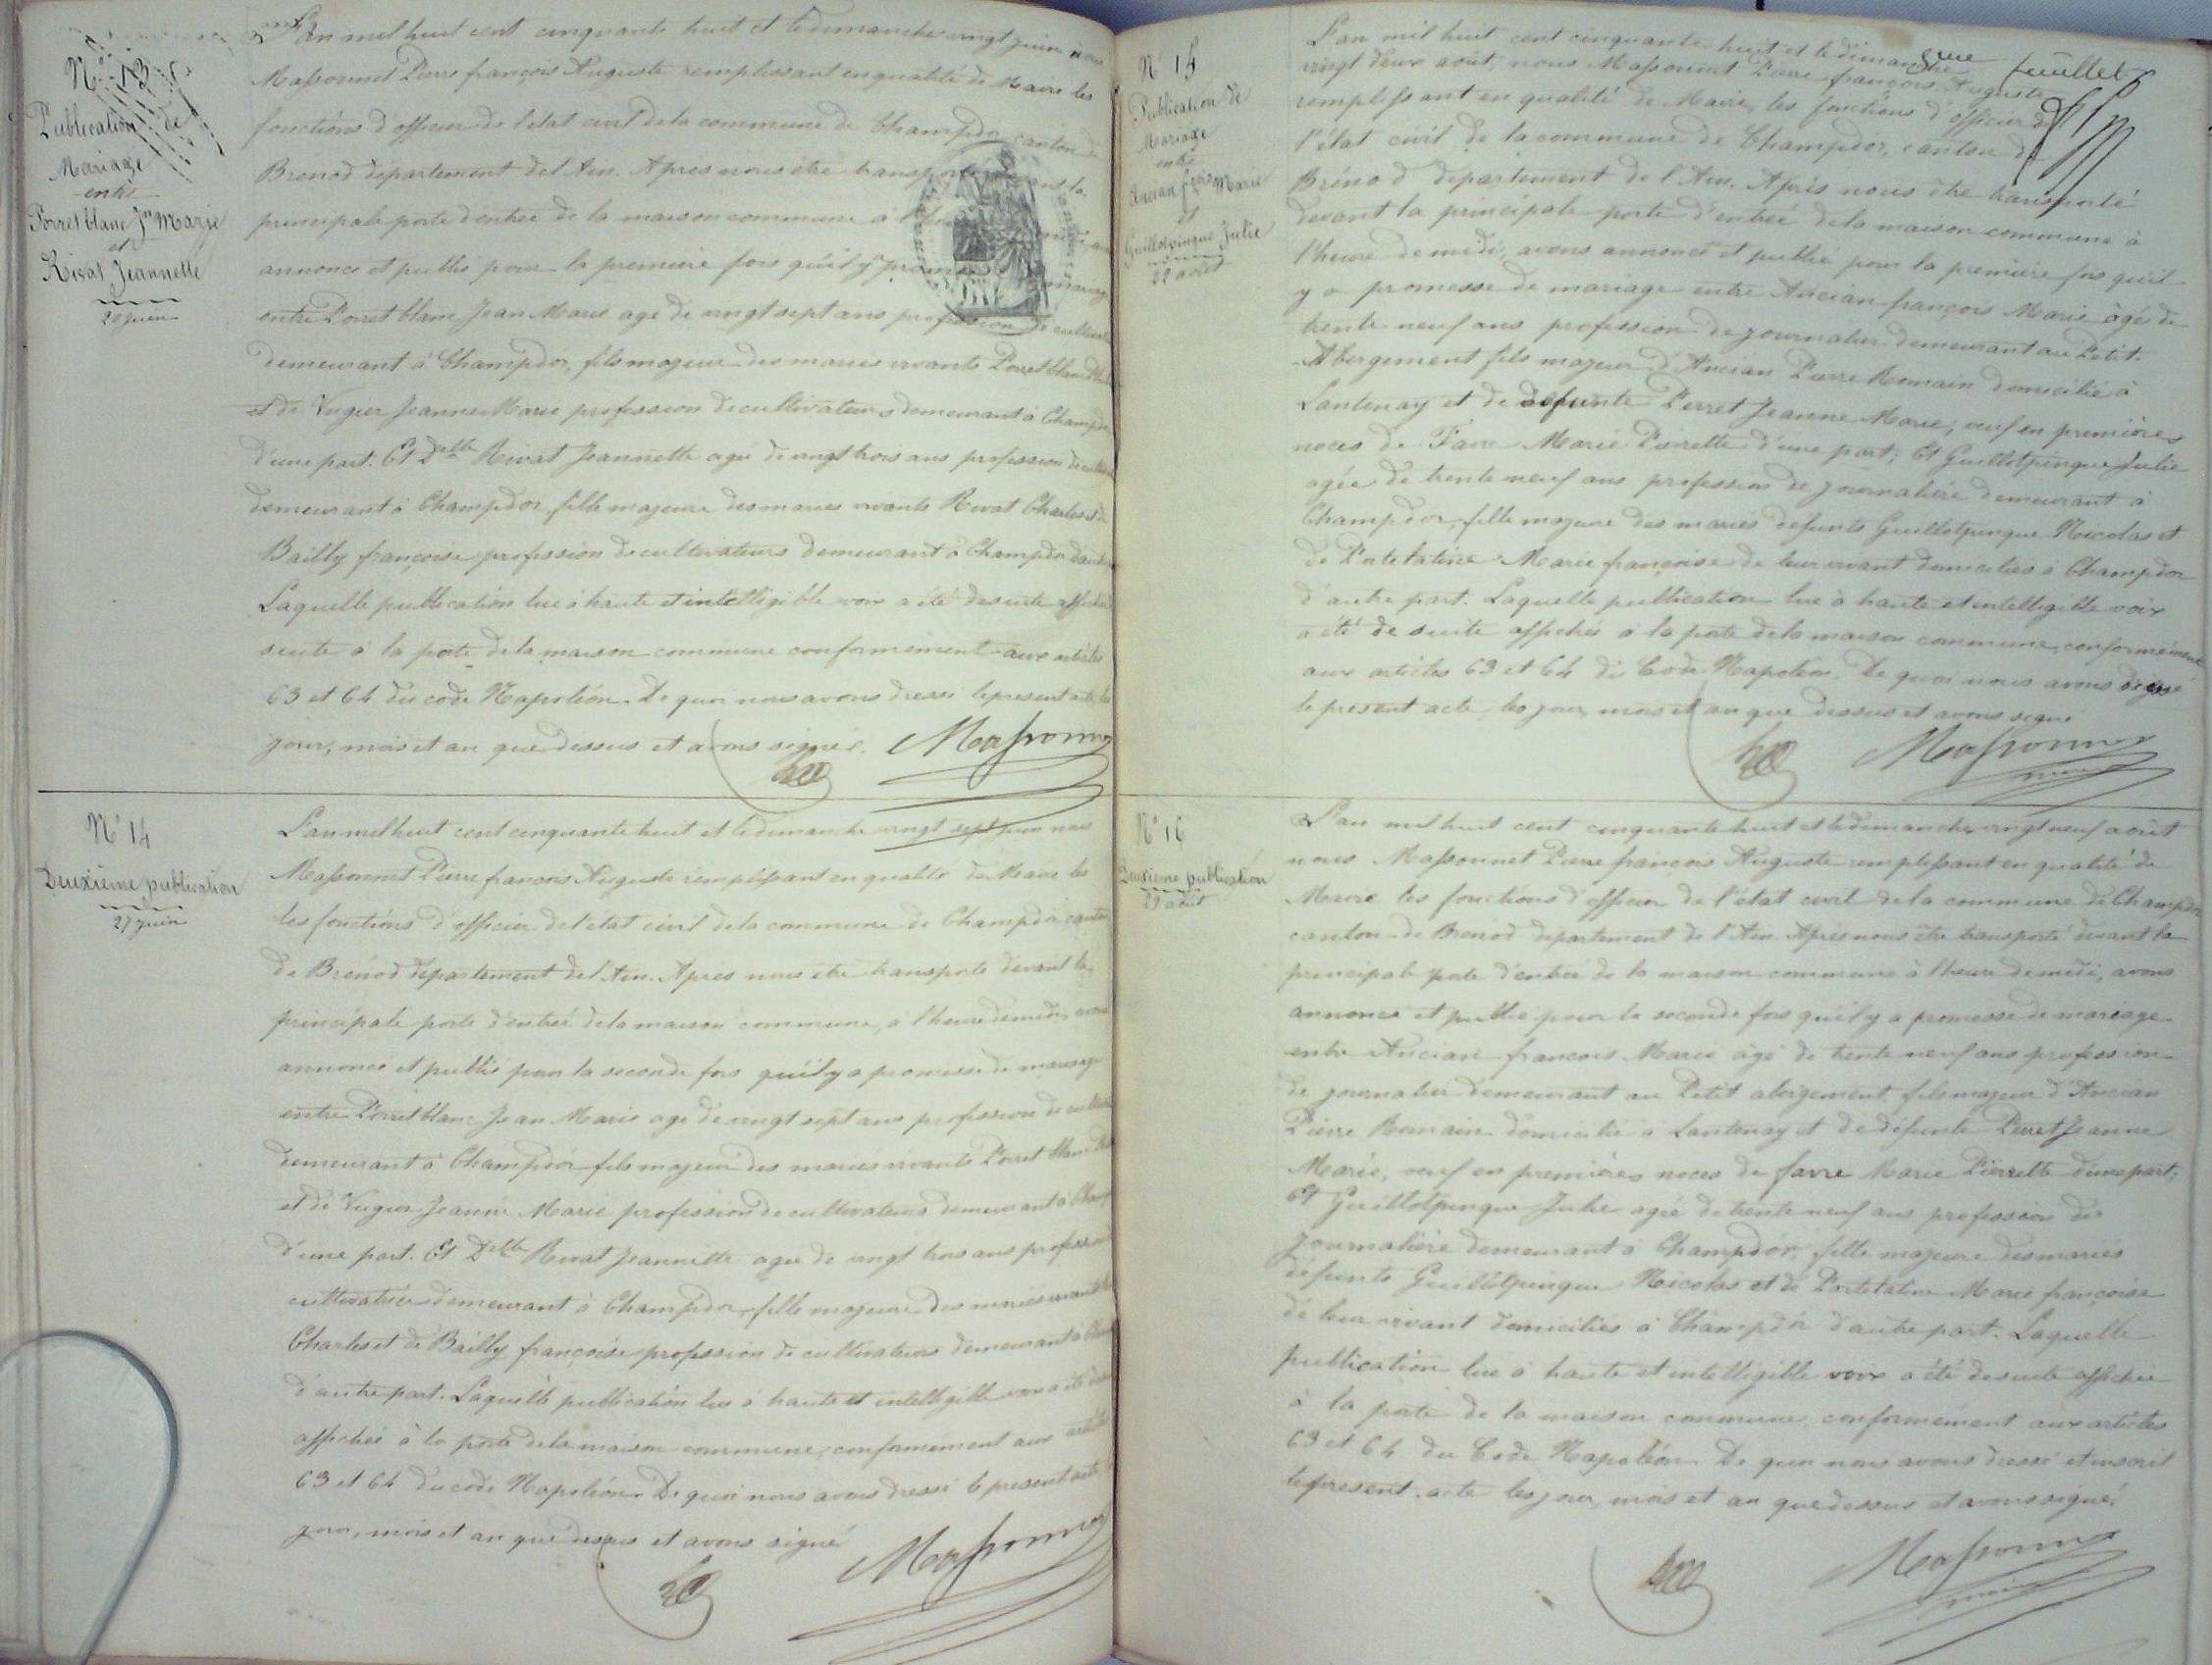 N° 13
Publication de
Mariage
entre
Porret blanc Jn Marie
et
Rivat Jeannette
20 juin
L'an mil huit cent cinquante huit et le dimanche vingt juin nous
Massonnet Pierre françois Auguste remplissant en qualité de Maire les
fonctions d'officier de l'état civil de la commune de Champdor canton de
Brenod département de l'Ain. Après nous être transporté devant la
principale porte d'entrée de la maison commune à l'heure midi, avons
annoncé et publié pour la première fois qu'il y promesse mariage
entre Porret blanc Jean Marie agé de vingt sept ans profession de cultivateur
demeurant à Champdor, fils majeur des mariés vivants Porret blanc
et de Vugier Jeanne Marie profession de cultivateurs demeurant à Champdor
d'une part. Et Delle Rivat Jeannette agée de vingt trois ans profession de
demeurant à Champdor fille majeure des mariés vivants Rivat Charles et de
Bailly françoise profession de cultivateurs demeurant à Champdor d'autre
Laquelle publication lue à haute et intelligible voix a été de suite affichée
suite à la porte de la maison commune conformément aux articles
63 et 64 du code Napoléon. De quoi nous avons dressé le présent acte les
jour, mois et an que dessus et avons signé. Massonnet
N° 14
Deuxième publication
27 juin
L'an mil huit cent cinquante huit et le dimanche vingt sept juin nous
Massonnet Pierre françois Auguste remplissant en qualité de Maire les
les fonctions d'officier de l'état civil de la commune de Champdor canton
de Brénod département de l'Ain. Après nous être transporté devant la
principale porte d'entrée de la maison commune, à l'heure de midi, avons
annoncé et publié pour la seconde fois qu'il y a promesse de mariage
entre Porret blanc Jean Marie agé de vingt sept ans profession de cultivateur
demeurant à Champdor fils majeur des mariés vivants Porret blanc
et de Vugier Jeanne Marie profession de cultivateurs demeurant à Champdor
d'une part. Et Delle Rivat Jeannette agée de vingt trois ans profession
cultivatrice demeurant à Champdor, fille majeure des mariés vivants
Charles et de Bailly françoise profession de cultivateurs demeurant à Champdor
d'autre part. Laquelle publication lue à haute et intelligible voix a été de
affichée à la porte de la maison commune, conformément aux articles
63 et 64 du code Napoléon. De quoi nous avons dressé le présent acte,
jour, mois et an que dessus et avons signé
Massonnet
feuillet
N° 15
Publication de
Mariage
entre
Ancian fçois Marie
et
Guillotpingue Julie
22 août
L'an mil huit cent cinquante huit et le dimanche
vingt deux août, nous Massonnet Pierre françois Auguste
remplissant en qualité de Maire, les fonctions d'officier de
l'état civil de la commune de Champdor, canton de
Brénod département de l'Ain. Après nous être transporté
devant la principale porte d'entrée de la maison commune à
l'heure de midi, avons annoncé et publié pour la première fois qu'il
y a promesse de mariage entre Ancian françois Marie âgé de
trente neuf ans profession de journalier demeurant au Petit-
Abergement fils majeur d'Ancian Pierre Romain domicilié à
Lantenay et de defunte Perret Jeanne Marie; veuf en premières
noces de Favre Marie Pierrette d'une part; Et Guillotpingue Julie
agée de trente neuf ans profession de journalière demeurant à
Champdor, fille majeure des mariés défunts Guillotpingue Nicolas et
de Portetatine Marie françoise de leur vivant domiciliés à Champdor
d'autre part. Laquelle publication lue à haute et intelligible voix
a été de suite affichée à la porte de la maison commune, conformément
aux articles 63 et 64 du Code Napoléon. De quoi nous avons dressé
le présent acte, les jour, mois et an que dessus et avons signé
Massonnet
maire
N° 16
Deuxième publication
29 août
L'an mil huit cent cinquante huit et le dimanche vingt neuf août
nous Massonnet Pierre françois Auguste remplissant en qualité de
Maire les fonctions d'officier de l'état civil de la commune de Champdor
canton de Brenod département de l'Ain. Après nous être transporté devant la
principale porte d'entrée de la maison commune à l'heure de midi, avons
annoncé et publié pour la seconde fois qu'il y a promesse de mariage
entre Ancian françois Marie âgé de trente neuf ans profession
de journalier demeurant au Petit abergement, fils majeur d'Ancian
Pierre Romain domicilié à Lantenay et de défunte Perret Jeanne
Marie, veuf en premières noces de favre Marie Pierrette d'une part;
Et Guillotpingue Julie agée de trente neuf ans profession de
journalière demeurant à Champdor, fille majeure des mariés
défunts Guillotpingue Nicolas et de Portetatine Marie françoise
de leur vivant domiciliés à Champdor d'autre part. Laquelle
publication lue à haute et intelligible voix a été de suite affichée
à la porte de la maison commune, conformément aux articles
63 et 64 du Code Napoléon. De quoi nous avons dressé et inscrit
le présent acte les jour, mois et an que dessus et avons signé.
Massonnet
maire